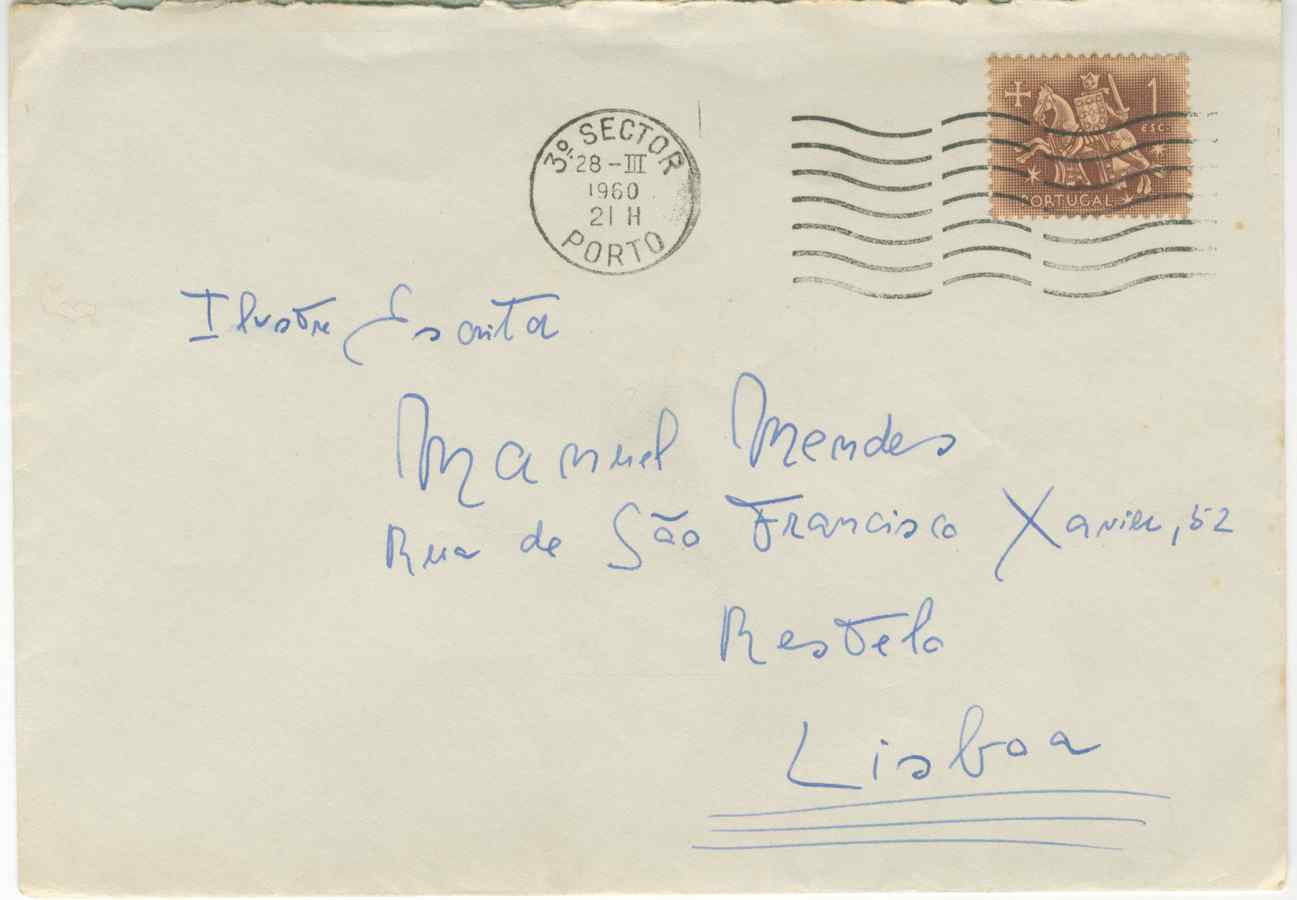 3º SECTOR
28-III
1960
21 H
PORTO
1
ESC.
PORTUGAL
Ilustre Escritor
Manuel Mendes
Rua de São Francisco Xavier, 52
Restelo
Lisboa